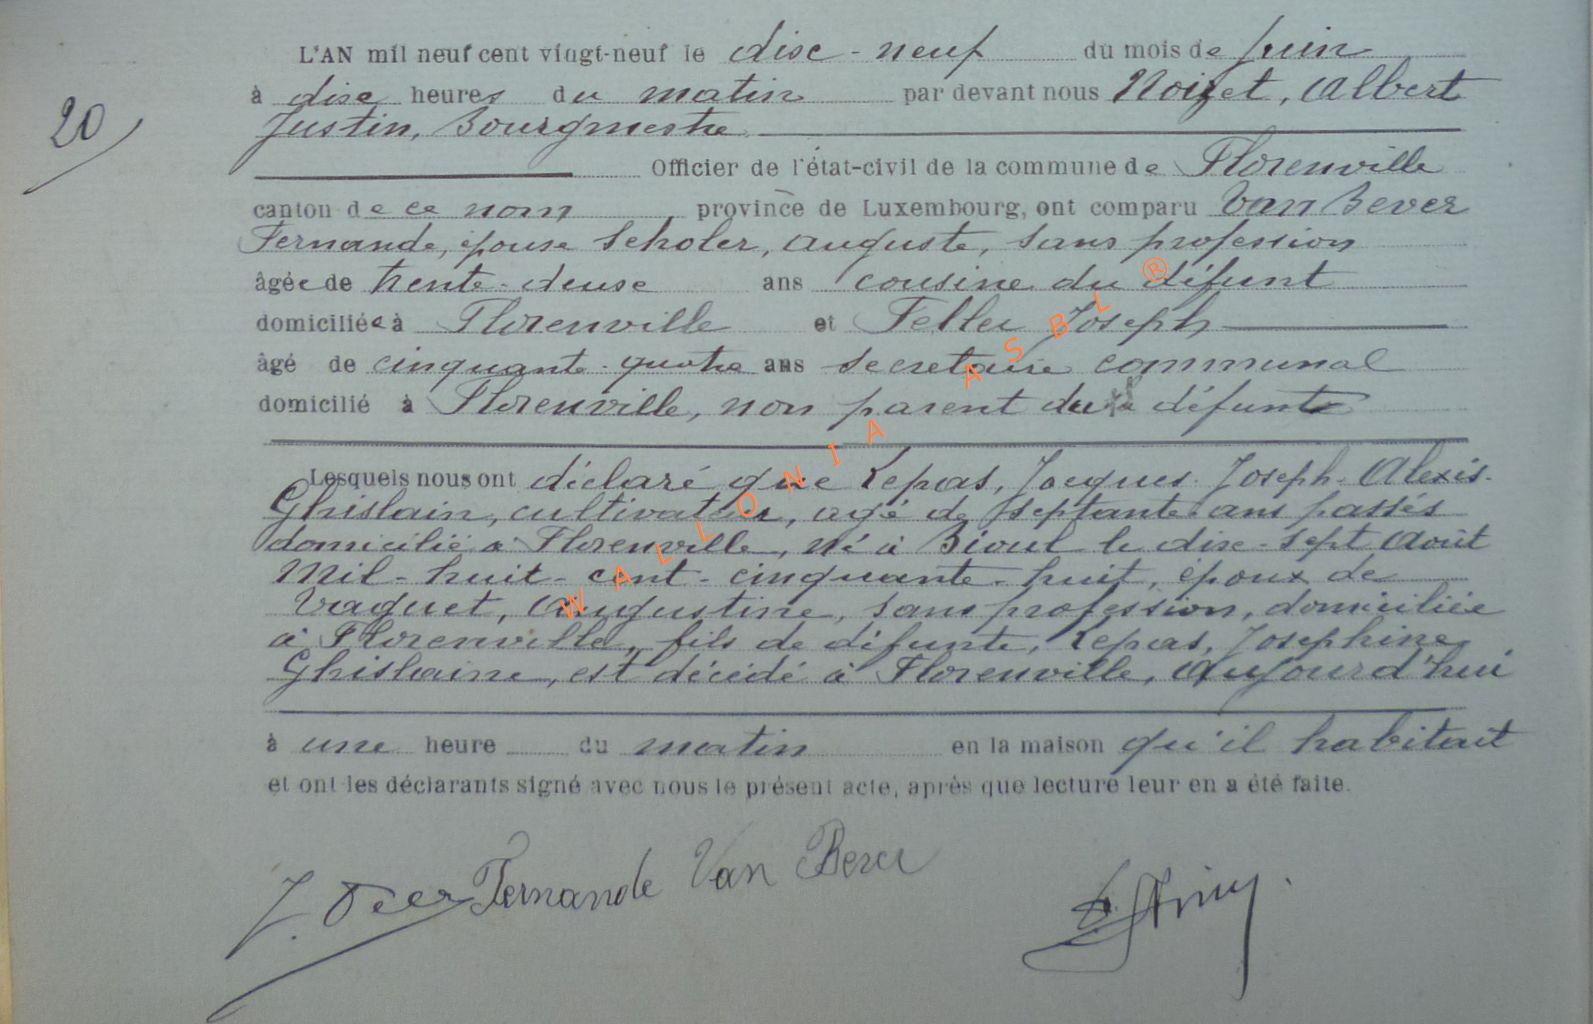 20
L'AN mil neuf cent vingt-neuf le dixe-neuf du mois de Juin
à dixe heures du matin par devant nous Noizet, Albert
Justin, Bourgmestre
Officier de l'état-civil de la commune de Florenville
canton de ce nom province de Luxembourg, ont comparu Van Bever
Fernande, épouse Scholer, Auguste, sans profession
âgée de trente-deuxe ans cousine du défunt
domiciliée à Florenville et Feller Joseph
âgé de cinquante-quatre ans secretaire communal
domicilié à Florenville, non parent du défunt
Lesquels nous ont déclaré que Repas, Jacques-Joseph-Alexis-
Ghislain, cultivateur, agé de septante ans passés
domicilié à Florenville, né à Bioul le dix-sept Août
Mil-huit-cent-cinquante-huit, époux de
Vraguet, Augustine, sans profession, domiciliée
à Florenville, fils de défunte, Repas, Josephine
Ghislaine, est décédé à Florenville, aujourd'hui
à une heure du matin en la maison qu'il habitait
et ont les déclarants signé avec nous le présent acte, après que lecture leur en a été faite.
Fernande Van Bever
WALLONIA ASBL ®